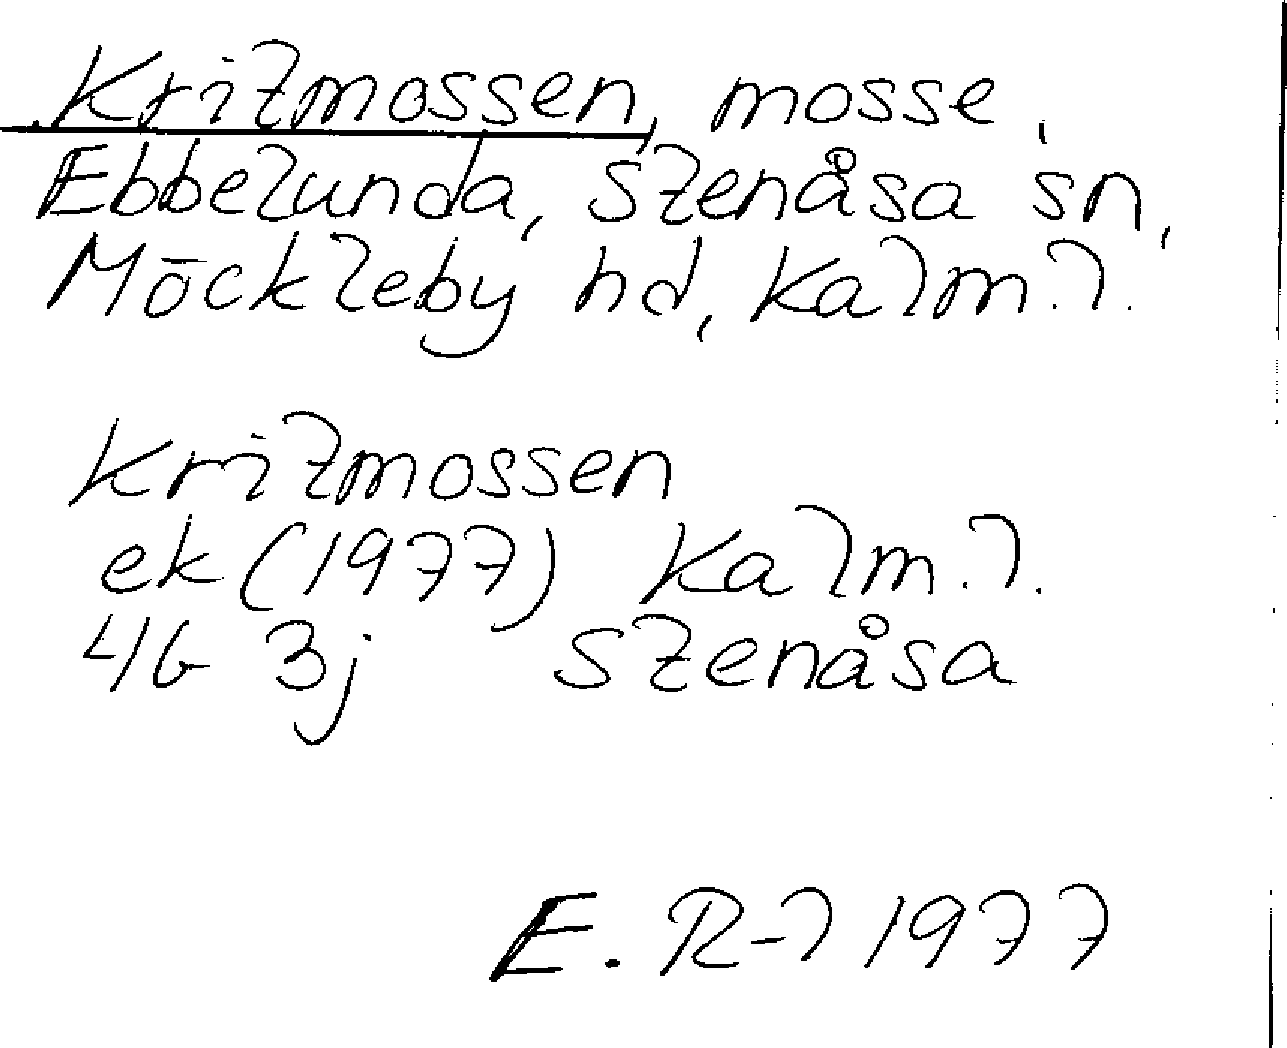 Kritmossen, mosse,
Ebbelunda, Stenåsa sn,
Möckleby hd, Kalm. l.
Kritmossen
ek (1977) Kalm. l.
4G 3j Stenåsa
E. R-l 1977